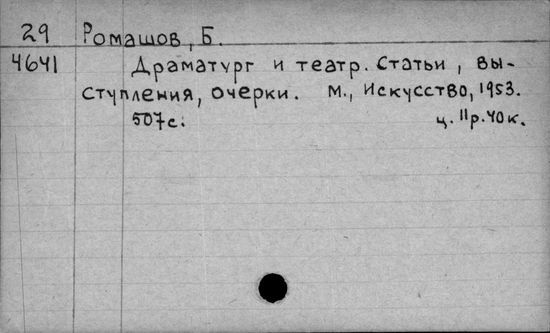 29 Ромашов, Б.
4641 Драматург и театр. Статьи, вы-
ступления, очерки. М., Искусство, 1953.
507с. ц. 11р. 40к.